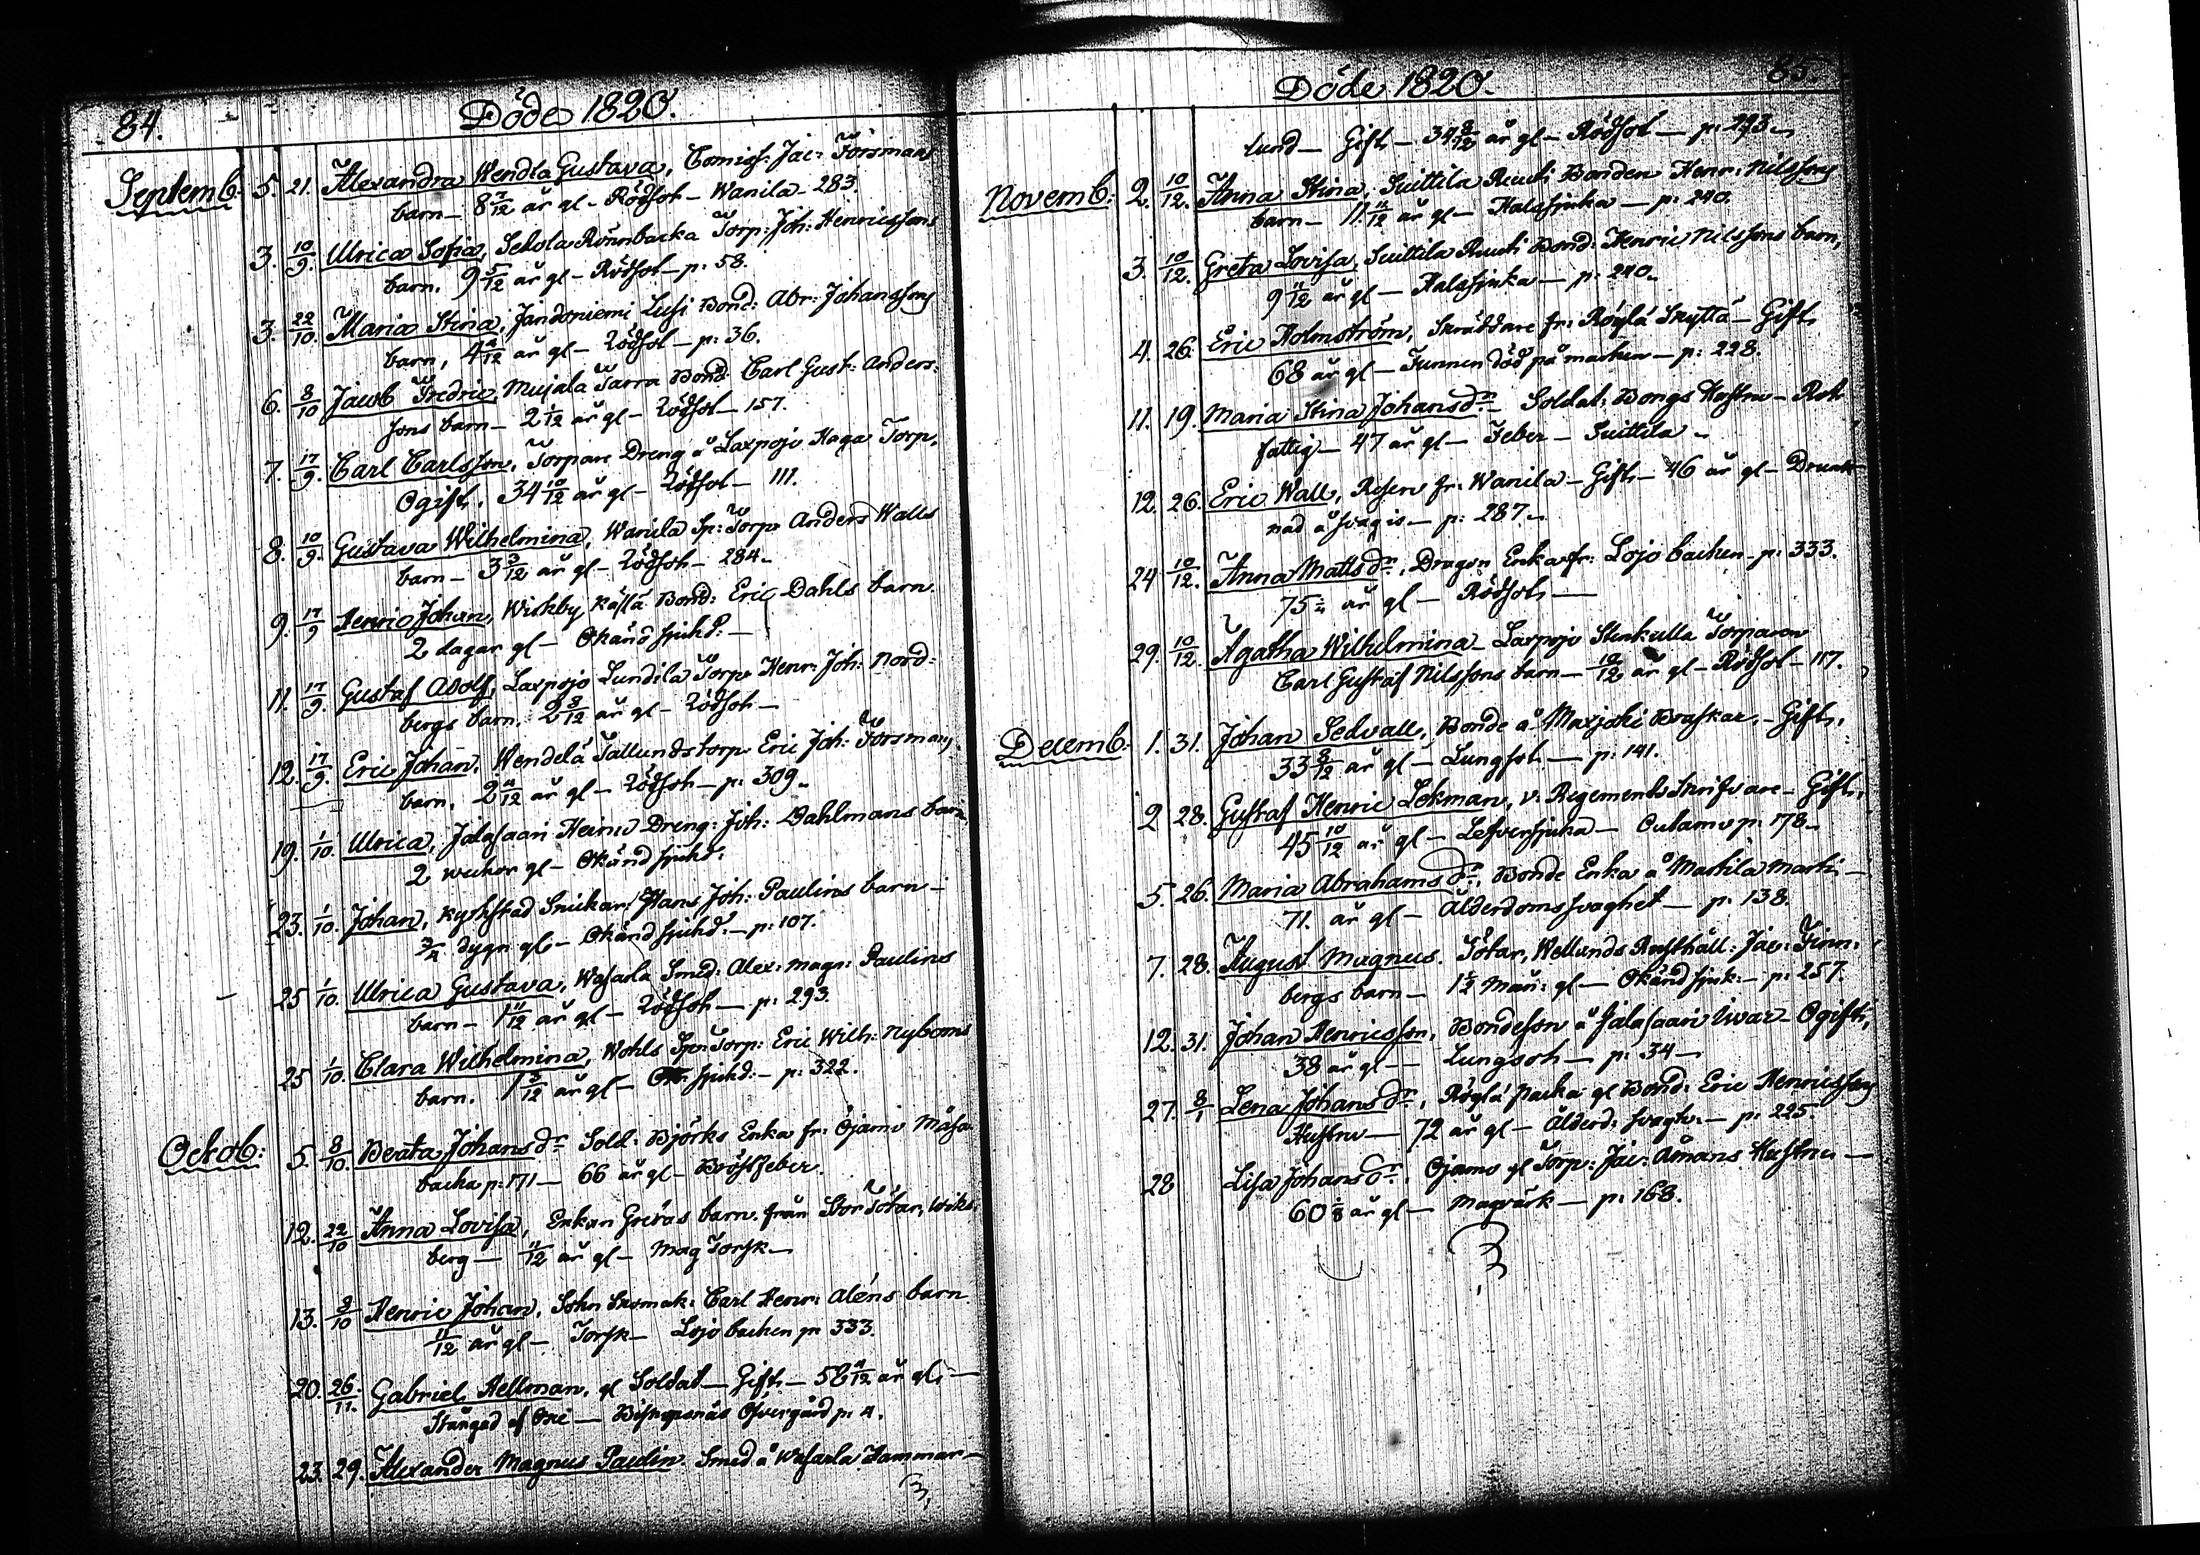 84.
Döde 1820.
Septemb: 5. 21. Alexandra Wendla Gustava, Comiss: Jac: Forsmans
barn – 8 7/12 år gl – Rödsot – Wanila – 283.
3. 10/9. Ulrica Sofia, Sekola Rönnbacka Torp: Joh: Henricssons
barn. 9 5/12 år gl – Rödsot – p: 58.
3. 22/10. Maria Stina, Jandoniemi Lusi Bond: Abr: Johanssons
barn, 4 4/12 år gl – Rödsot – p: 36.
6. 8/10 Jacob Fredric, Mujala Tarra Bond: Carl Gust: Anders-
sons barn – 2 1/12 år gl – Rödsot – 157.
7. 17/9. Carl Carlsson, Torpare Dreng å Laxpojo Haga Torp,
Ogift. 34 10/12 år gl – Rödsot – 111.
8. 10/9. Gustava Wilhelmina, Wanila Sp: Torp: Anders Walls
barn – 3 3/12 år gl – Rödsot – 284.
9. 17/9 Henric Johan, Wiskby Källä Bond: Eric Dahls barn.
2 dagar gl – Okänd sjukd: –
11. 17/9. Gustaf Adolf, Laxpojo Lundila Torp: Henr: Joh: Nord-
bergs barn. 2 8/12 år gl – Rödsot –
12. 17/9. Eric Johan, Wendelä Tallunds torp: Eric Joh: Forsmans
barn. 2 4/12 år gl – Rödsot – p: 309.
19. 1/10. Ulrica, Jalasaari Heimo Dreng: Joh: Dahlmans barn
2 weckor gl – Okänd sjukd:
23. 1/10. Johan, Kyrkstad Snickar: Hans Joh: Paulins barn –
3/4 dygn gl – Okänd sjukd: – p: 107.
25 1/10. Ulrica Gustava, Wasarla Smed: Alex: Magn: Paulins
barn – 1 11/12 år gl – Rödsot – p: 293.
25 1/10. Clara Wilhelmina, Wohls Sp: Torp: Eric Wilh: Nyboms
barn. 1 3/12 år gl – Ok: sjukd: – p: 322.
Octob: 5. 8/10. Beata Johansdr Sold: Björks Enka fr: Ojamo Måsa-
backa p: 171 – 66 år gl – Bröstfeber.
12. 22/10 Anna Lovisa, Enkan Gretas barn från Stor Tötar, Wiks-
berg – 11/12 år gl – Mag Torsk –
13. 8/10 Henric Johan, Sokn Skomak: Carl Henr: Aléns barn
11/12 år gl – Torsk – Lojo backen p: 333.
20. 26/11. Gabriel Hellman, gl Soldat – Gift – 58 4/12 år gl: –
Stångad af Oxe – Biskopsnäs Ofvergård p: 4.
23. 29. Alexander Magnus Paulin. Smed å Wasarla Hammar-
85.
Döde 1820.
lund – Gift – 34 8/12 år gl – Rödsot – p: 293.
Novemb: 2. 10/12. Anna Stina, Suittila Ruuti Bonden Henr: Nilssons
barn – 11 11/12 år gl – Halssjuka – p: 240.
3. 10/12. Greta Lovisa, Suittila Ruuti Bond: Henric Nilssons barn,
9 11/12 år gl – Halssjuka – p: 240.
4. 26. Eric Holmström, Skräddare fr: Röylä Skyttä – Gift
68 år gl – Funnen död på marken – p: 228.
11. 19. Maria Stina Johansdr – Soldat: Bongs Hustru – Rot-
fattig – 47 år gl – Feber – Suittila –
12. 26. Eric Wall, Reserv fr: Wanila – Gift – 46 år gl – Drunk-
nad å svag is – p: 287.
24 10/12. Anna Mattsdr, Dragon Enka fr: Lojo backen – p: 333.
75 år gl – Rödsot –
29. 10/12. Agatha Wilhelmina – Laxpojo Stenkulla Torparen
Carl Gustaf Nilssons barn – 10/12 år gl – Rödsot – 117.
Decemb: 1. 31. Johan Sedvall, Bonde å Maxjoki Braskar, – Gift,
33 8/12 år gl – Lungsot – p: 141.
2 28. Gustaf Henric Lekman, v: Regements Skrifvare – Gift,
45 10/12 år gl – Lefversjuka – Outamo p: 178.
5. 26. Maria Abrahamsdr, Bonde Enka å Martila Marti –
71. år gl – Ålderdoms svaghet – p: 138.
7. 28. August Magnus. Tötar, Wellunds Rusthåll: Jac: Finn-
bergs barn – 1 1/2 Mån: gl – Okänd sjuk: – p: 257.
12. 31. Johan Henricsson, Bondeson å Jalasaari Iwar – Ogift,
38 år gl – Lungsot – p: 34 –
27. 8/1 Lena Johansdr, Röylä Packa gl Bond: Eric Henricssons
Hustru – 72 år gl – Ålderd: svaght: – p: 225.
28 Lisa Johansdr, Ojamo gl Torp: Jac: Åmans Hustru –
60 år gl – Magvärk – p: 168.